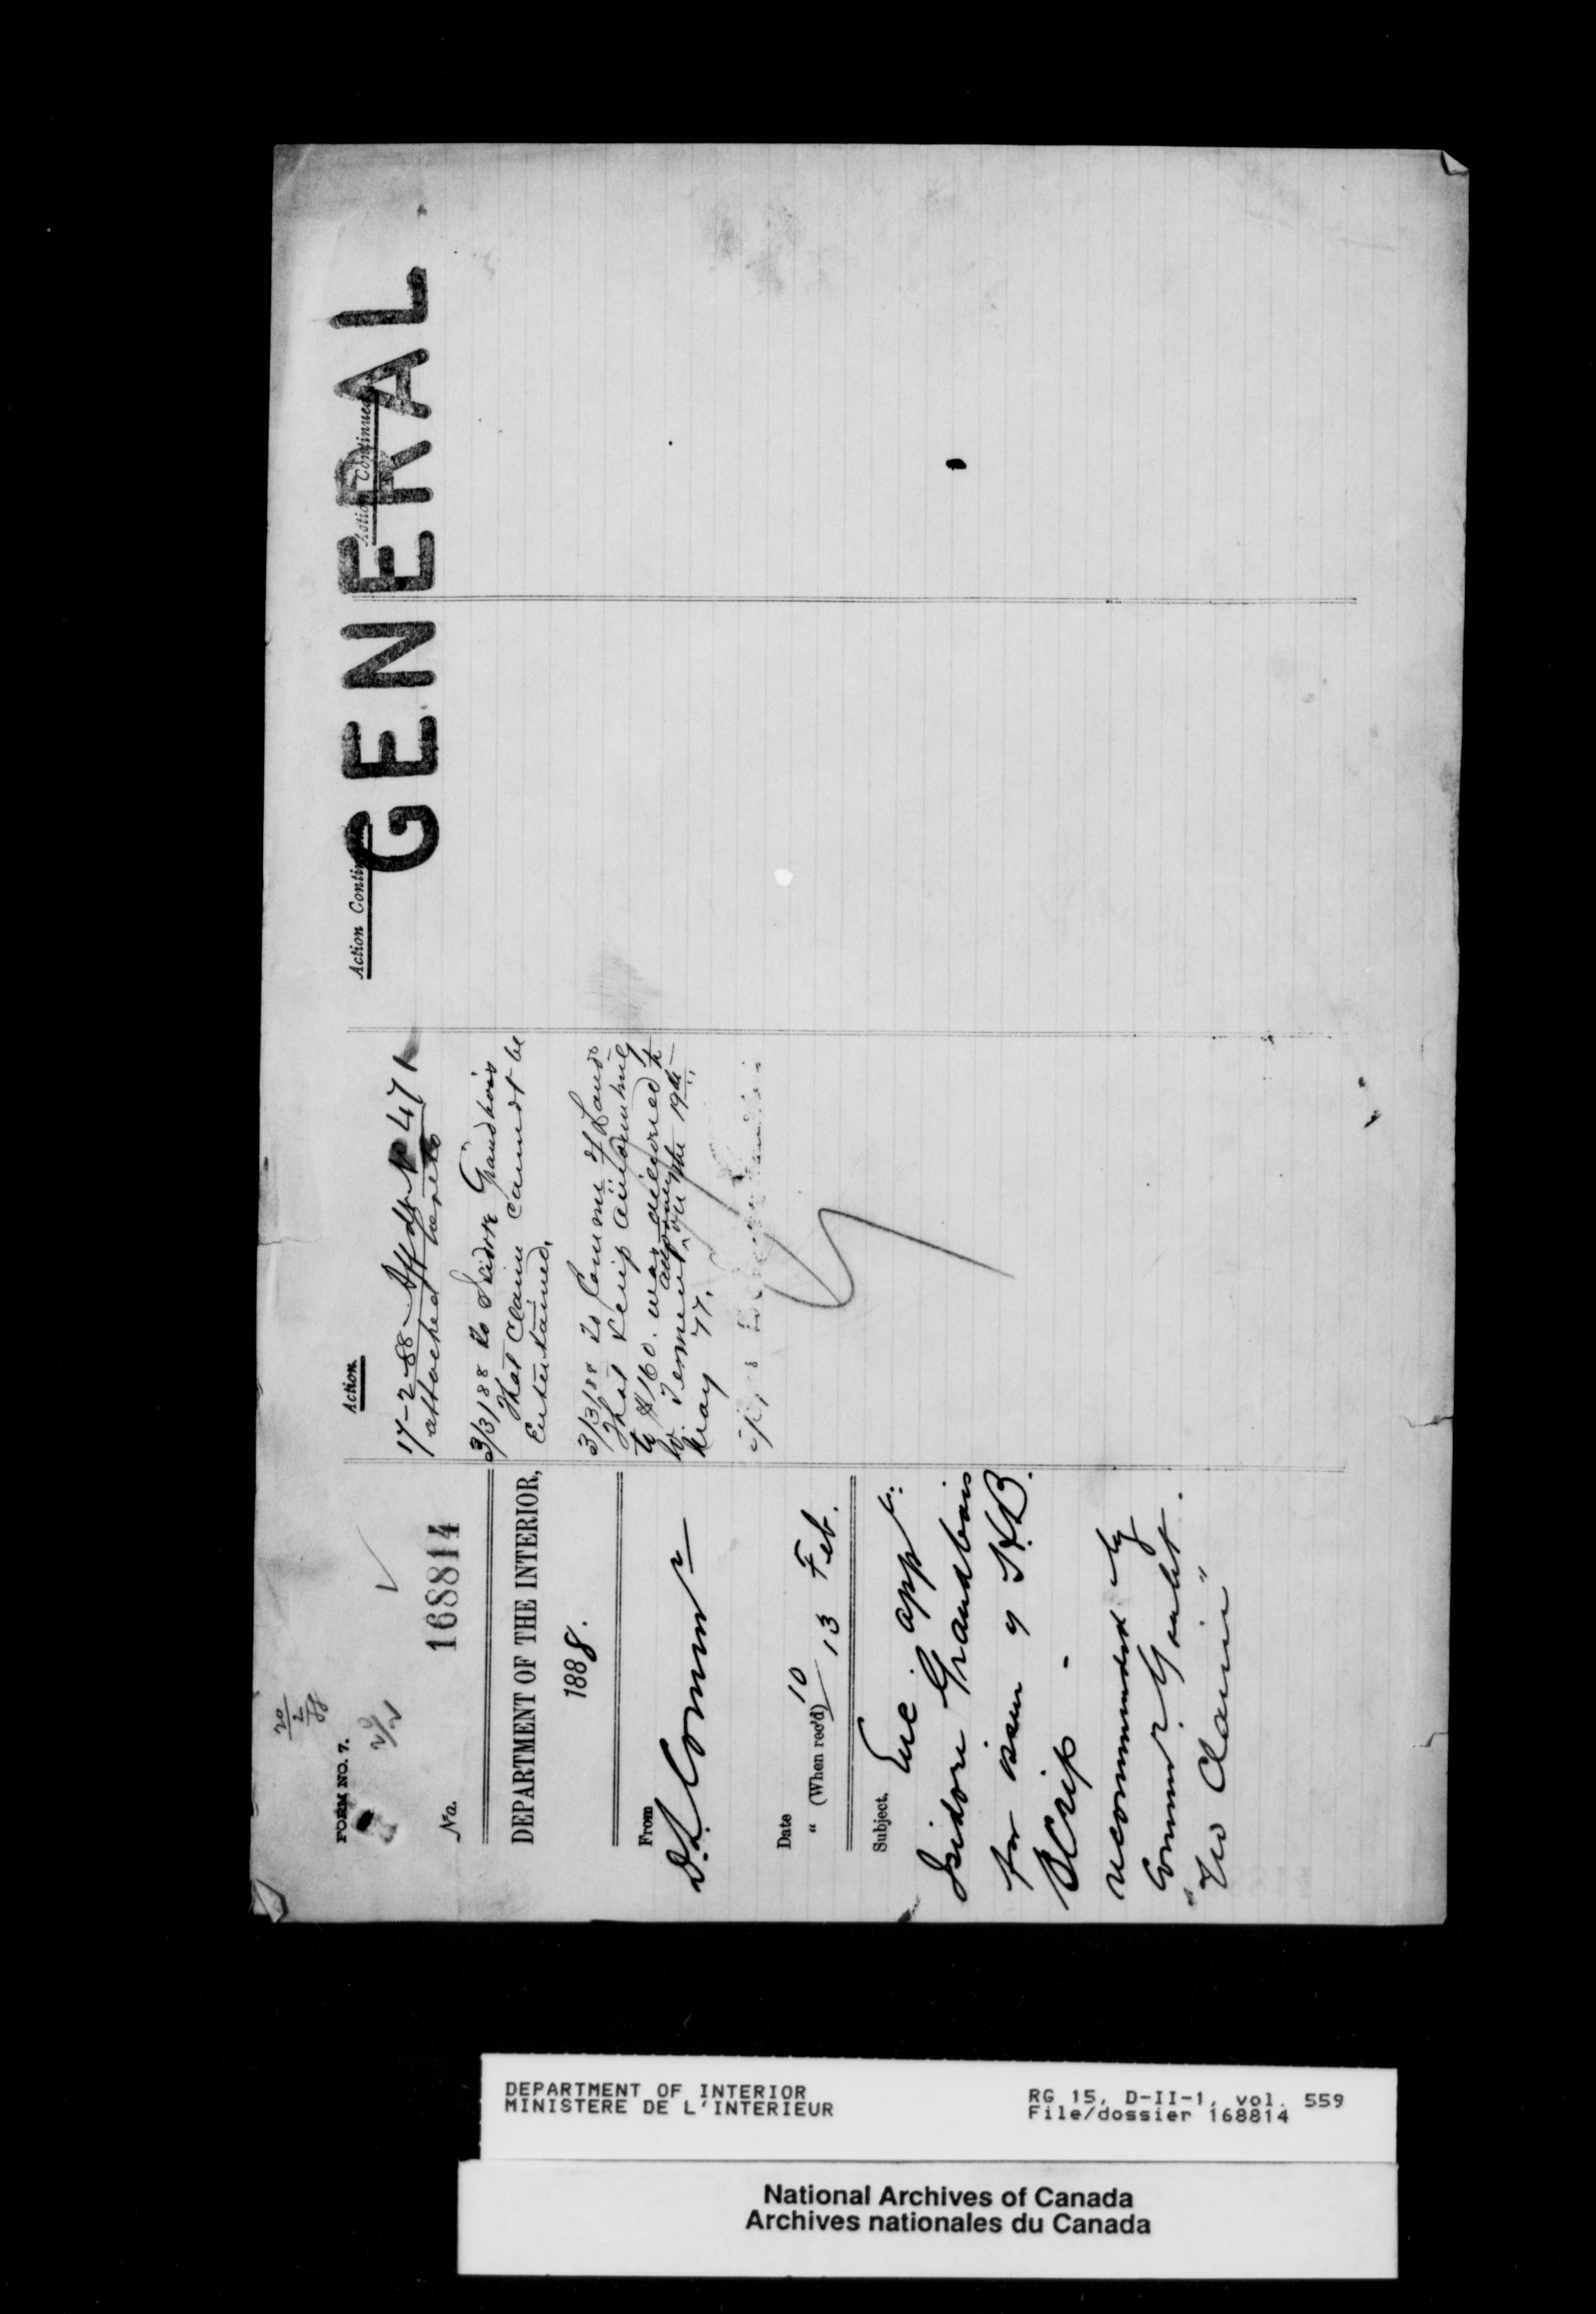 FORM NO. 7.
20
2
88
No. 168814
DEPARTMENT OF THE INTERIOR,
1888.
From
D. L. Commr
Date 10
" (When rec'd) 13 Feb.
Subject.
Enc app n:
Isidore Grandbois
for issue of H.B.
Scrip -
recommended by
Commr
"No Claim"
Action.
17-2-88 Affdt No 471
attached hereto
3/3/88 To Isidore Grandbois
That claim cannot be
Entertained.
3/3/88 To Comm of Lands
That Scrip amounting
to $160. was delivered to
attorney
on the 19th
May 77.
Action Contin
Action Continued
GENERAL
DEPARTMENT OF INTERIOR
MINISTERE DE L'INTERIEUR
RG 15, D-II-1, vol. 559
File/dossier 168814
National Archives of Canada
Archives nationales du Canada